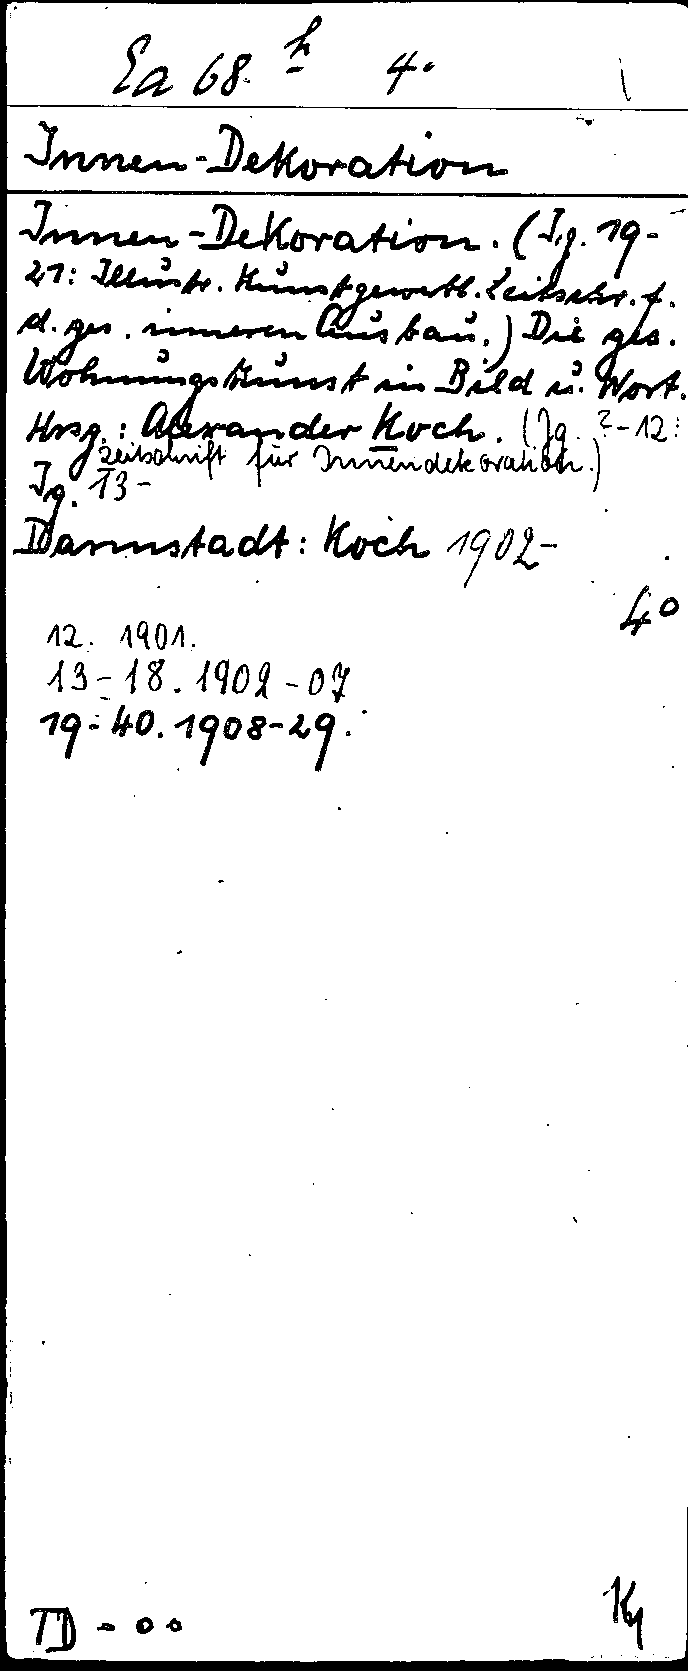 Ea 68. h 4.
Innen-Dekoration
Innen-Dekoration. (Jg. 19-
21: Illustr. Kunstgewerbl. Zeitschr. f.
d. ges. inneren Ausbau.) Die ges.
Wohnungskunst in Bild u. Wort.
Hrsg.: Alexander Koch. (Jg. ?-12:
Zeitschrift für Innendekoration.)
Jg. 13-
Darmstadt: Koch 1902-
4°
12. 1901.
13-18. 1902-07
19-40. 1908-29.
TD - oo